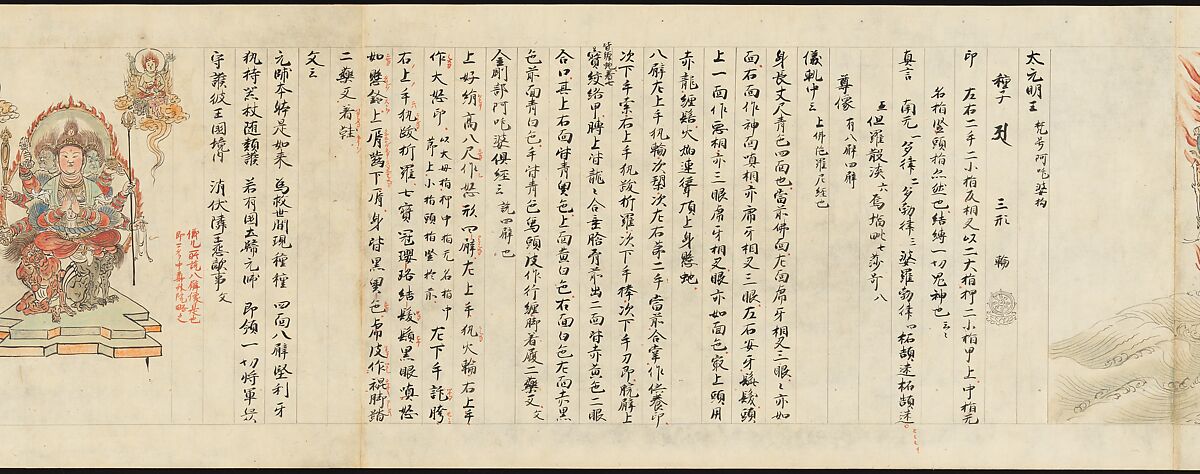 太元明王 梵号阿吒婆拘
種子 三形 輪
印 左右二手二小指反相叉以二大指押二小指甲上中指无
名指竪頭指亦然也結縛一切鬼神也云々
真言 南无 多律二 多勃律三 婆羅勃律四 柘頡迷柘頡迷
五 但羅散淡六 嗚揞毗七 莎呵八
尊像 有八臂四臂
儀軌中云 上佛陀羅尼経也
身長丈尺青色四面也當前佛面左面虎牙相叉三眼々亦如
面右面作神面瞋相亦虎牙相叉三眼左右安牙鬚髪頭
上一面作悪相亦三眼虎牙相叉眼亦如面色最上頭用
赤龍纏髻火焔連聳頂上身懸虵
八臂左上手執輪次槊次左右第二手當前合掌作供養印
次下手索右上手執跋折羅次下手棒次下手刀即腕臂上
皆纏虵着七
寳絞絡甲膊上皆龍々合垂胎脊前出二面皆赤黄色二眼
合口再上右面皆青黒色上面黄白色右面白色左面赤黒
色前面青白色手皆青色烏頭皮作行纏脚着履二藥叉 文
金剛部阿吒婆倶経云 説四臂也
上好絹高八尺作忿形四臂左上手執火輪右上手
作大怒印 以大母指押中指无名指甲上小指頭指竪於前 左下手託胯
右上手執跋折羅七寳冠瓔珞結髪鬚黒眼瞋怒
如懸鈴上脣齧下脣身皆黒黒色虎皮作褌脚踏
二藥叉着鞋
文云
元帥本特是如来 為救世間現種種 四面八臂堅利牙
執持器杖随類護 若有國土歸元帥 即領一切将軍兵
守護彼王國境内 消伏隣王悪敵事 文